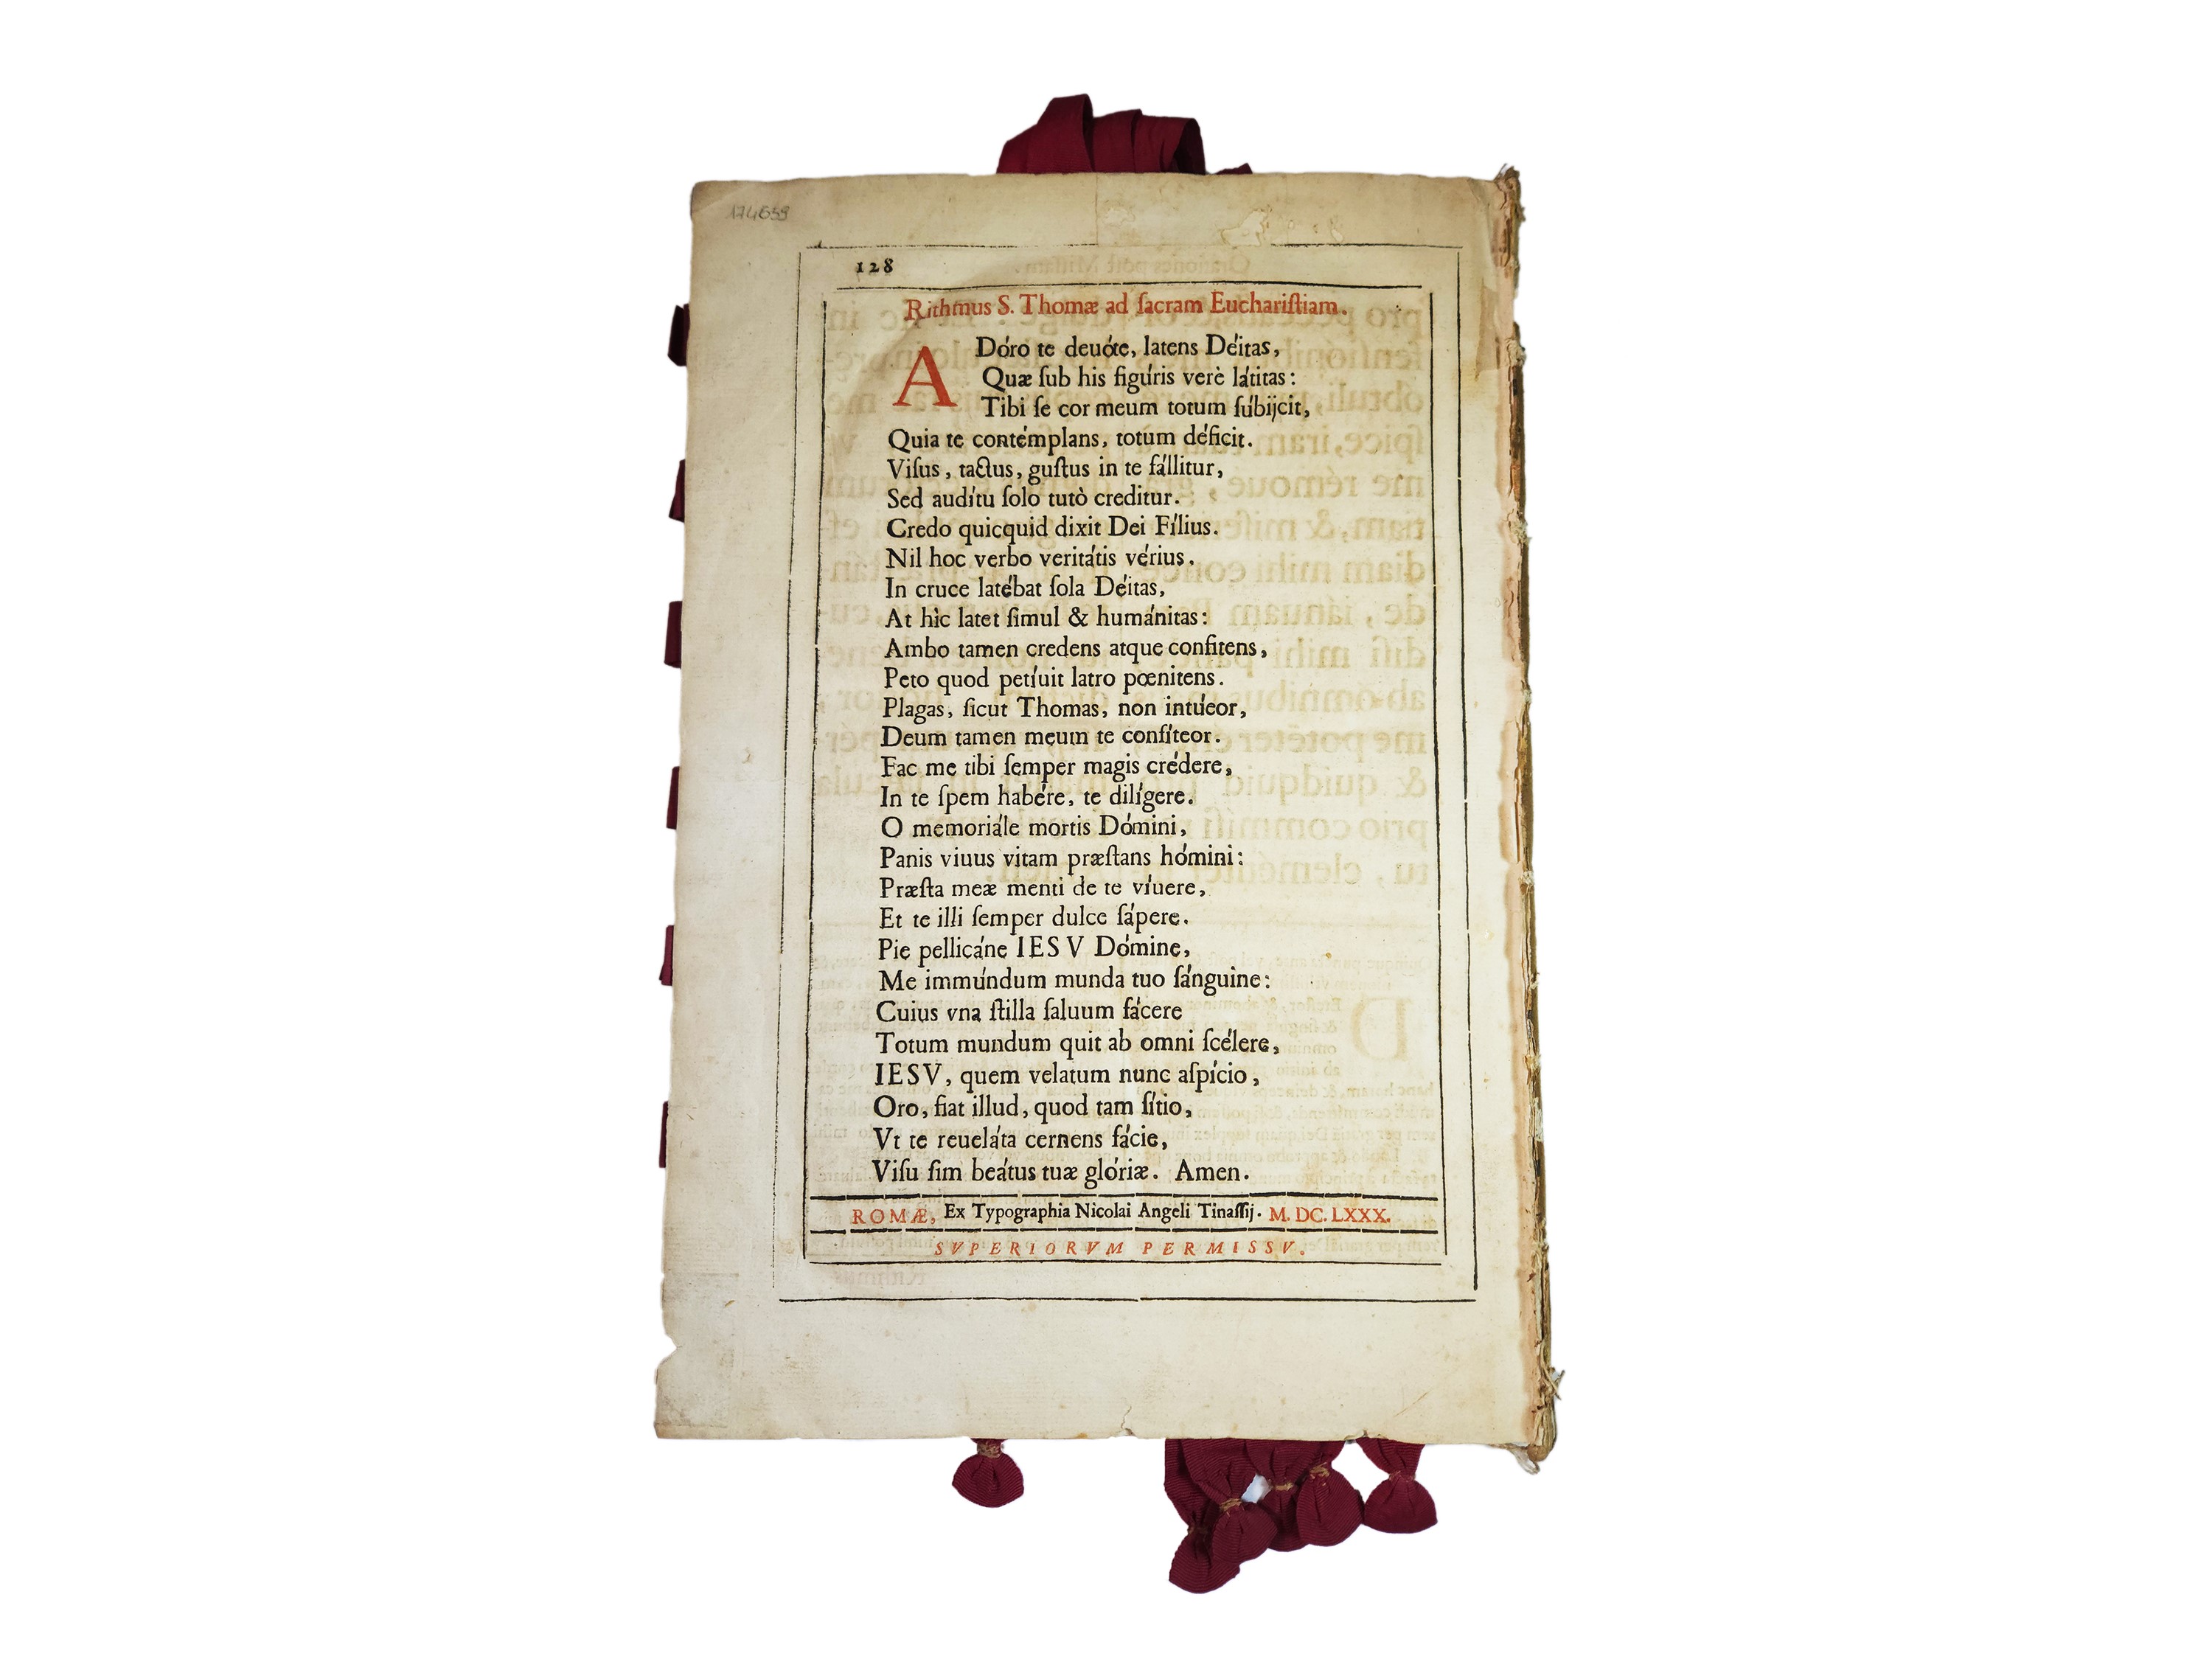 174639
128
Rithmus S. Thomæ ad ſacram Euchariſtiam.
ADóro te deuóte, latens Déitas,
Quæ ſub his figúris verè látitas:
Tibi ſe cor meum totum ſúbijcit,
Quia te contémplans, totum déficit.
Viſus, tactus, guſtus in te fállitur,
Sed audítu ſolo tutò creditur.
Credo quicquid dixit Dei Fílius.
Nil hoc verbo veritátis vérius.
In cruce latébat ſola Déitas,
At hìc latet ſimul & humánitas:
Ambo tamen credens atque confitens,
Peto quod petíuit latro pœnitens.
Plagas, ſicut Thomas, non intúeor,
Deum tamen meum te confíteor.
Fac me tibi ſemper magis crédere,
In te ſpem habére, te dilígere.
O memoriále mortis Dómini,
Panis viuus vitam præſtans hómini:
Præſta meæ menti de te víuere,
Et te illi ſemper dulce ſápere.
Pie pellicáne IESV Dómine,
Me immúndum munda tuo ſánguine:
Cuius vna ſtilla ſaluum fácere
Totum mundum quit ab omni ſcélere,
IESV, quem velatum nunc aſpício,
Oro, fiat illud, quod tam ſítio,
Vt te reueláta cernens fácie,
Viſu ſim beátus tuæ glóriæ. Amen.
ROMÆ, Ex Typographia Nicolai Angeli Tinaſſij. M. DC. LXXX.
SVPERIORVM PERMISSV.